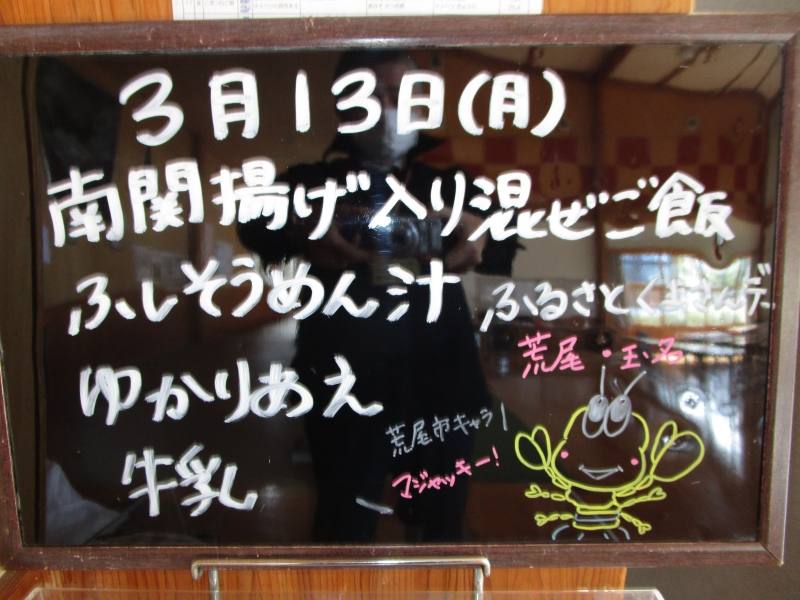 3月13日(月)
南関揚げ入り混ぜご飯
ふしそうめん汁
ふるさとくまさんデー
荒尾・玉名
ゆかりあえ
荒尾市キャラー
マジャッキー!
牛乳